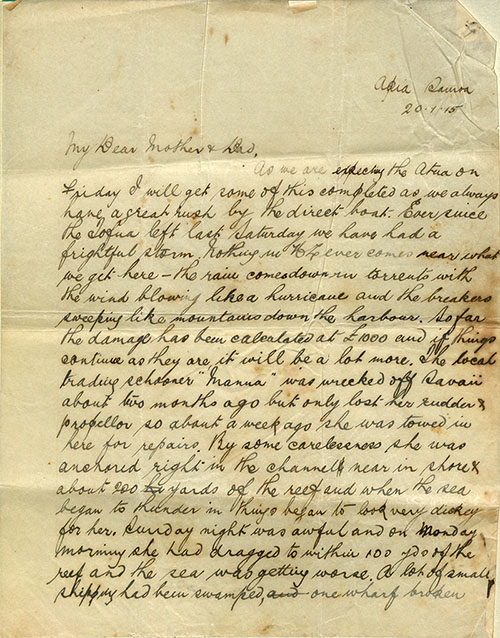 Apia Samoa
20-1-15
My Dear Mother & Dad,
As we are expecting the Atua on
Friday I will get some of this completed as we always
have a great rush by the direct boat. Ever since
the Sofua left last Saturday we have had a
frightful storm. Nothing in N.Z. ever comes near what
we get here – the rain comes down in torrents with
the wind blowing like a hurricane and the breakers
sweeping like mountains down the harbour. So far
the damage has been calculated at £1000 and if things
continue as they are it will be a lot more. The local
trading schooner "Manua" was wrecked off Savaii
about two months ago but only lost her rudder &
propellor so about a week ago she was towed in
here for repairs. By some carelessness she was
anchored right in the channel near in shore &
about 200 yards of the reef and when the sea
began to thunder in things began to look very dickey
for her. Sunday night was awful and on Monday
morning she had dragged to within 100 yds of the
reef and the sea was getting worse. A lot of small
shipping had been swamped, and one wharf broken